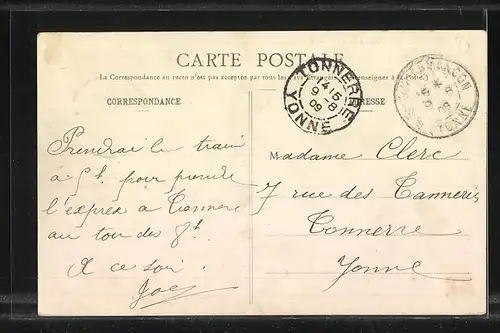 CARTE POSTALE
La Correspondance au recto n'est pas acceptée par tous les Pays Étrangers (Se renseigner à la Poste)
CORRESPONDANCE
ADRESSE
TONNERRE
4 15
9 - 8
09
YONNE
YONNE
Prendrai le train
à 5h. pour prendre
l'express a Tonnerre
au tour des 8h
A ce soir.
Madame Clerc
7 rue des Tanneries
Tonnerre
Yonne